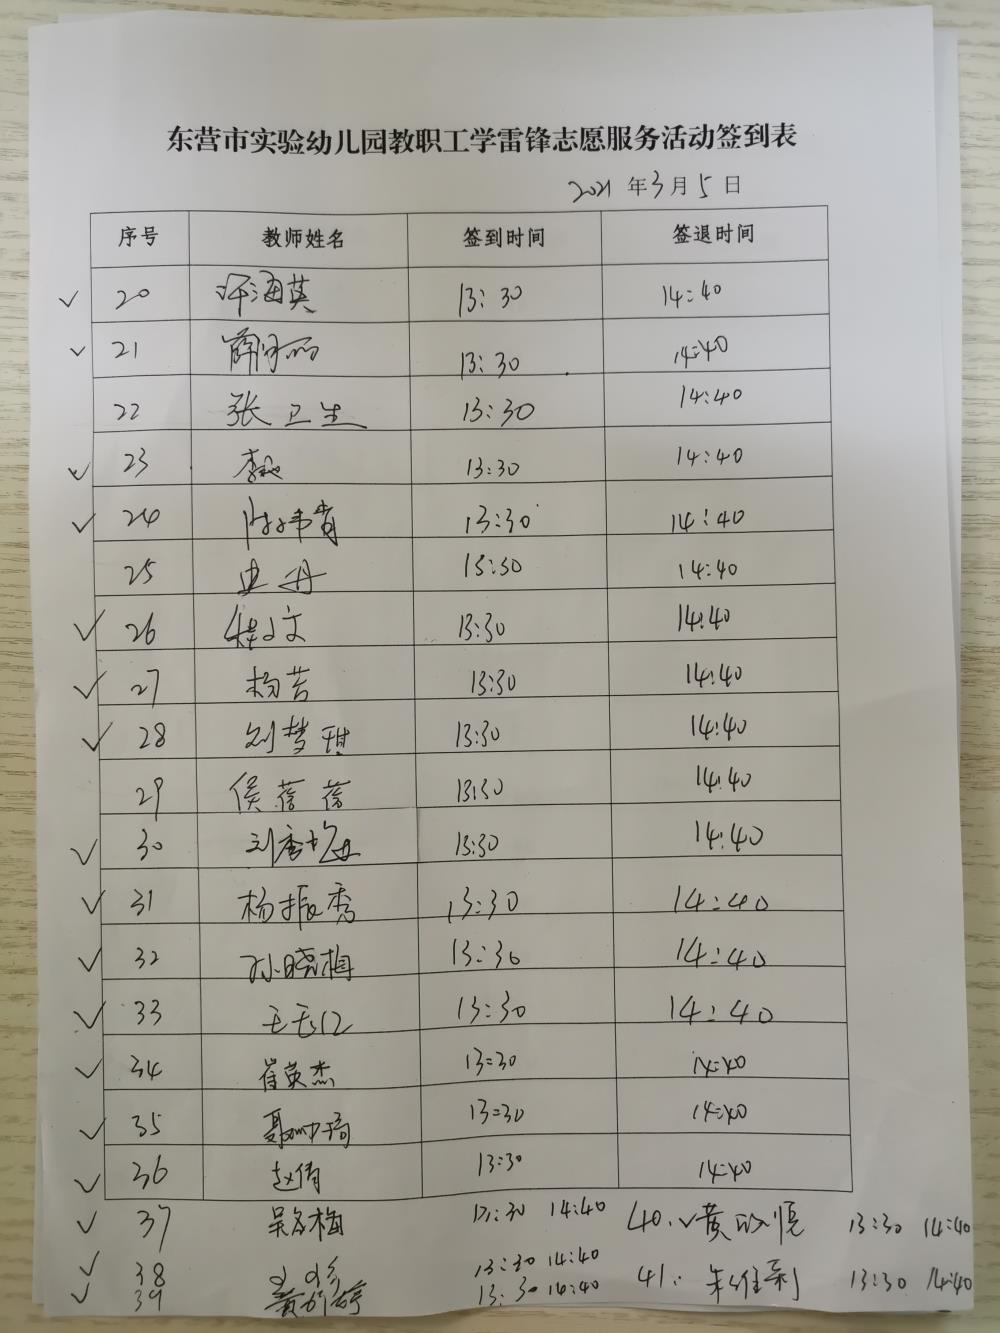 东营市实验幼儿园教职工学雷锋志愿服务活动签到表
2021 年 3 月 5 日
序号 教师姓名 签到时间 签退时间
✓ 20 海英 13:30 14:40
✓ 21 薛 13:30 14:40
22 张卫生 13:30 14:40
✓ 23 李 13:30 14:40
✓ 24 13:30 14:40
25 史丹 13:30 14:40
✓ 26 文 13:30 14:40
✓ 27 杨芸 13:30 14:40
✓ 28 刘梦琪 13:30 14:40
29 侯蓓蓓 13:30 14:40
✓ 30 刘 13:30 14:40
✓ 31 杨振秀 13:30 14:40
✓ 32 孙晓梅 13:30 14:40
✓ 33 王 13:30 14:40
✓ 34 崔英杰 13:30 14:40
✓ 35 聂 13:30 14:40
✓ 36 赵倩 13:30 14:40
✓ 37 吴冬梅 13:30 14:40 40. ✓ 黄 13:30 14:40
✓ 38 13:30 14:40
✓ 39 黄 13:30 14:40 41. 朱维利 13:30 14:40